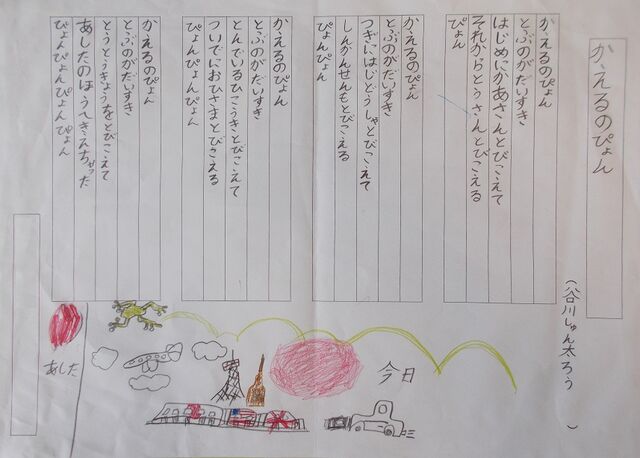 かえるのぴょん
(谷川しゅん太ろう)
かえるのぴょん
とぶのがだいすき
はじめにかあさんとびこえて
それからとうさんとびこえる
ぴょん
かえるのぴょん
とぶのがだいすき
つぎにはじどうしゃとびこえて
しんかんせんもとびこえる
ぴょんぴょん
かえるのぴょん
とぶのがだいすき
とんでいるひこうきとびこえて
ついでにおひさまとびこえる
ぴょんぴょんぴょん
かえるのぴょん
とぶのがだいすき
とうとうきょうをとびこえて
あしたのほうへきえちゃった
ぴょんぴょんぴょんぴょん
今日
あした